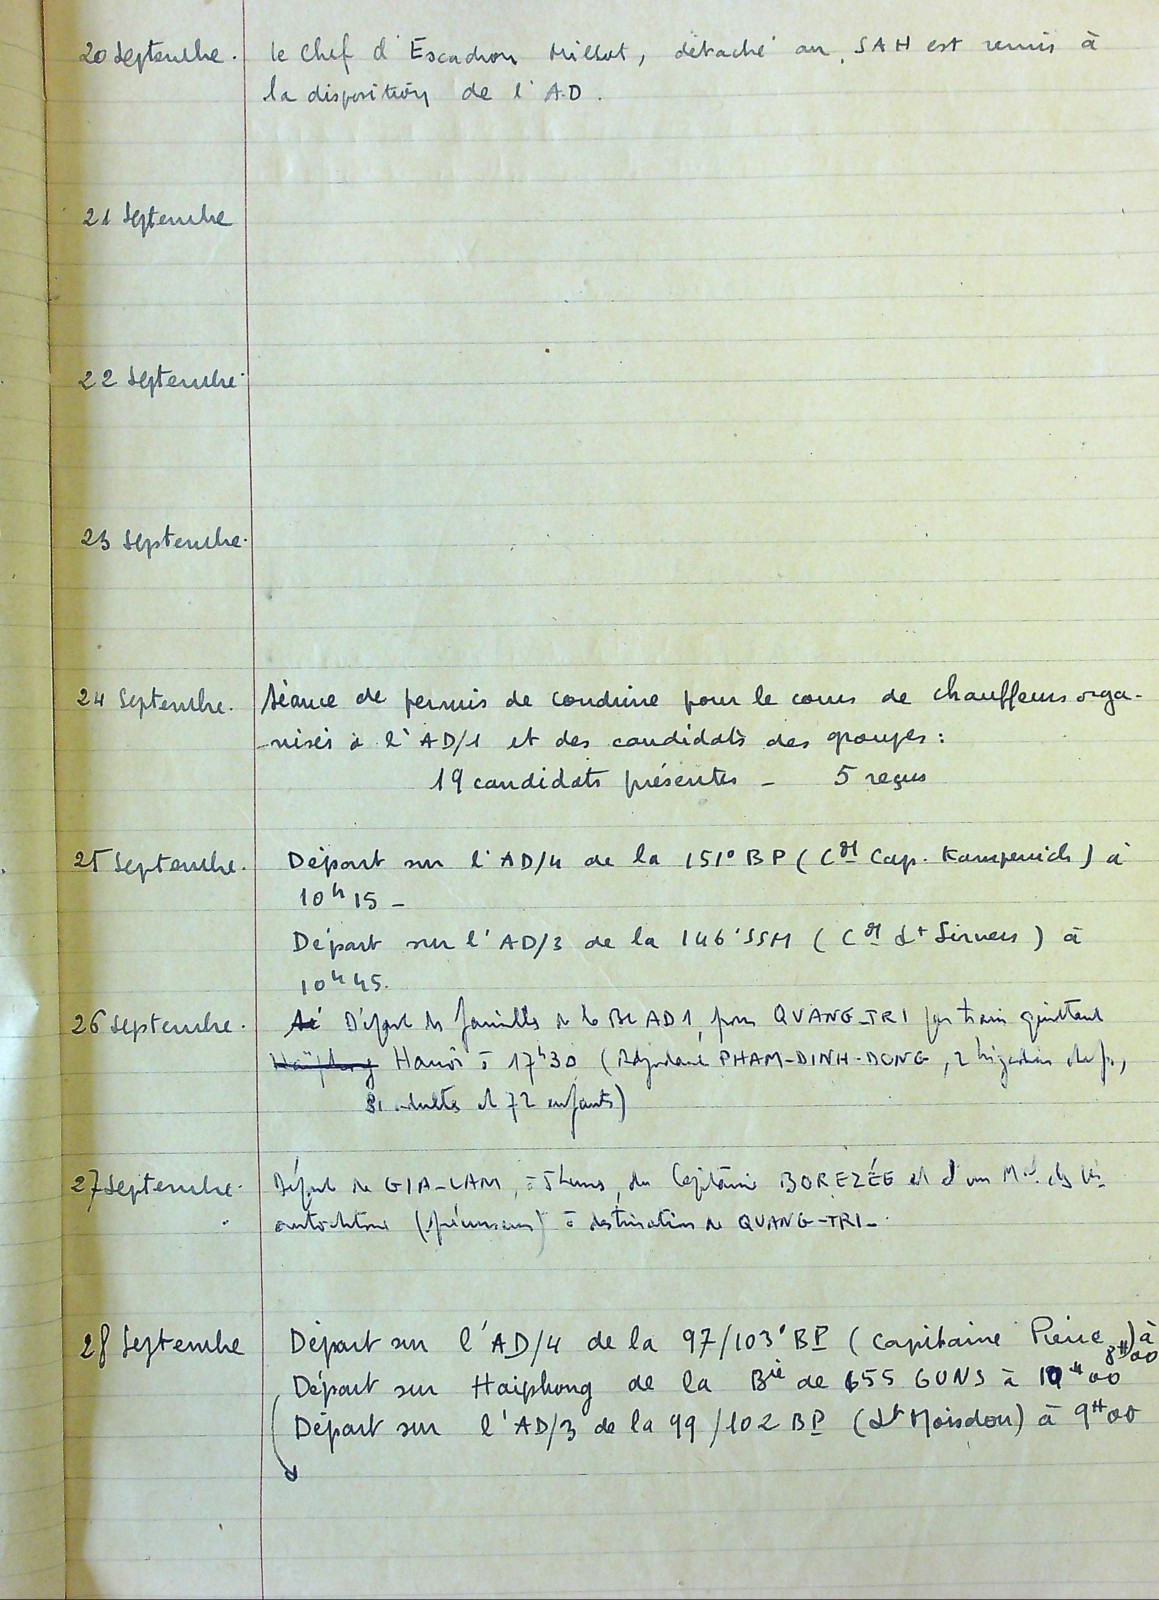 20 Septembre. le Chef d'Escadron Millot, détaché au SAH est remis à
la disposition de l'A.D.
21 Septembre
22 Septembre
23 Septembre.
24 Septembre. Séance de permis de conduire pour le cours de chauffeurs orga-
-nisés à l'AD/1 et des candidats des groupes :
19 candidats présentés - 5 reçus
25 Septembre. Départ sur l'AD/4 de la 151° BP (Cdt Cap. Kampenich) à
10h15 -
Départ sur l'AD/3 de la 146° SSM (Cdt Lt Sirvers) à
10h45.
26 Septembre. Départ des familles de la AD1, pour QUANG-TRI par train quittant
Haïphong Hanoï à 17h30 (PHAM-DINH-DONG, 2 brigadiers chefs,
adultes et 72 enfants)
27 Septembre. Départ de GIA-LAM, à 5 heures, du Capitaine BOREZÉE et d'un
autochtone (précurseurs) à destination de QUANG-TRI -
28 Septembre Départ sur l'AD/4 de la 97/103° BP (Capitaine Pierre) à
8H00
Départ sur Haiphong de la Bie de 655 GUNS à 10H00
Départ sur l'AD/3 de la 99/102 BP (Lt Moisdon) à 9H00